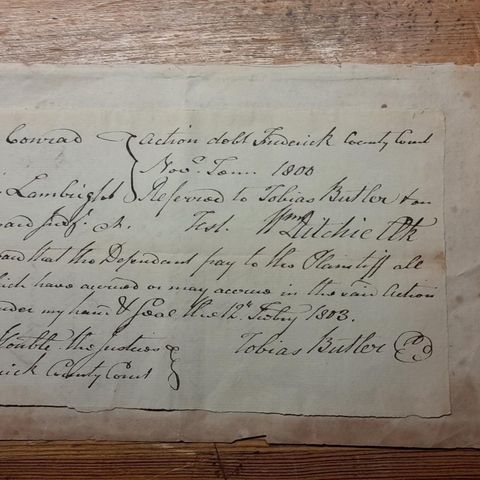 Conrad } Action debt Frederick County Court
Novr. Term 1800
Lambright } Referred to Tobias Butler & on
Test. Wm Ritchie Clk
that the Dependant pay to the Plaintiff all
which have accrued or may accrue in the said Action
under my hand & Seal the 12th. Feby 1803.
Honble. the Justices } Tobias Butler
rick County Court